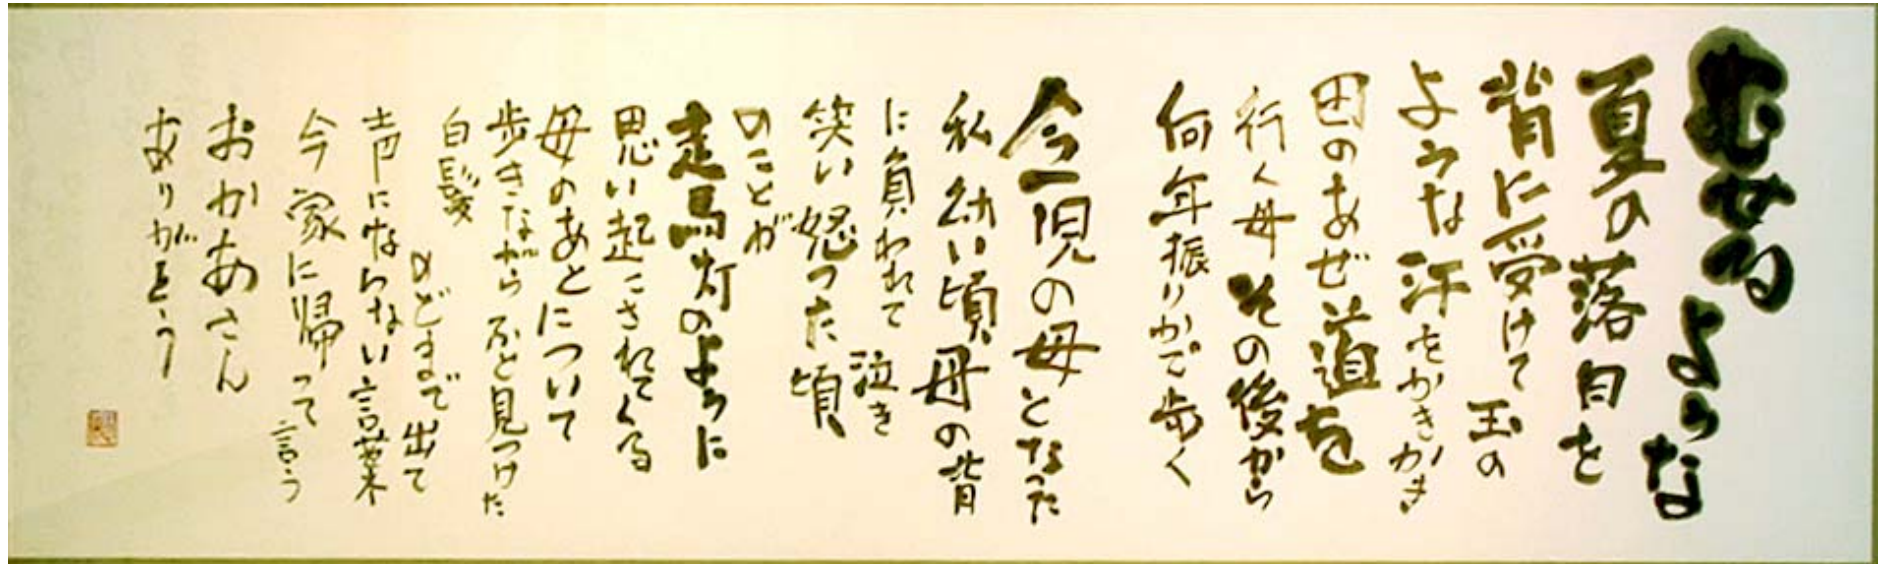 むせるような
夏の落日を
背に受けて玉の
ような汗をかきかき
田のあぜ道を
行く母その後から
何年振りかで歩く
今一児の母となった
私幼い頃母の背
に負われて泣き
笑い怒った頃
のことが
走馬灯のように
思い起こされてくる
母のあとについて
歩きながらふと見つけた
白髪
のどまで出て
声にならない言葉
今家に帰って言う
おかあさん
ありがとう